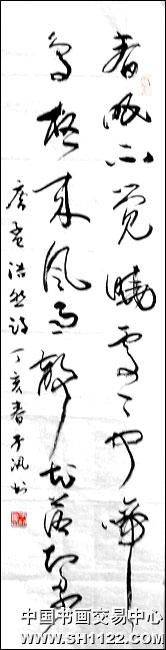 春眠不觉晓处处闻啼
鸟夜来风雨声花落知多少
唐孟浩然诗 丁亥春 书
中国书画交易中心
www.SH1122.com